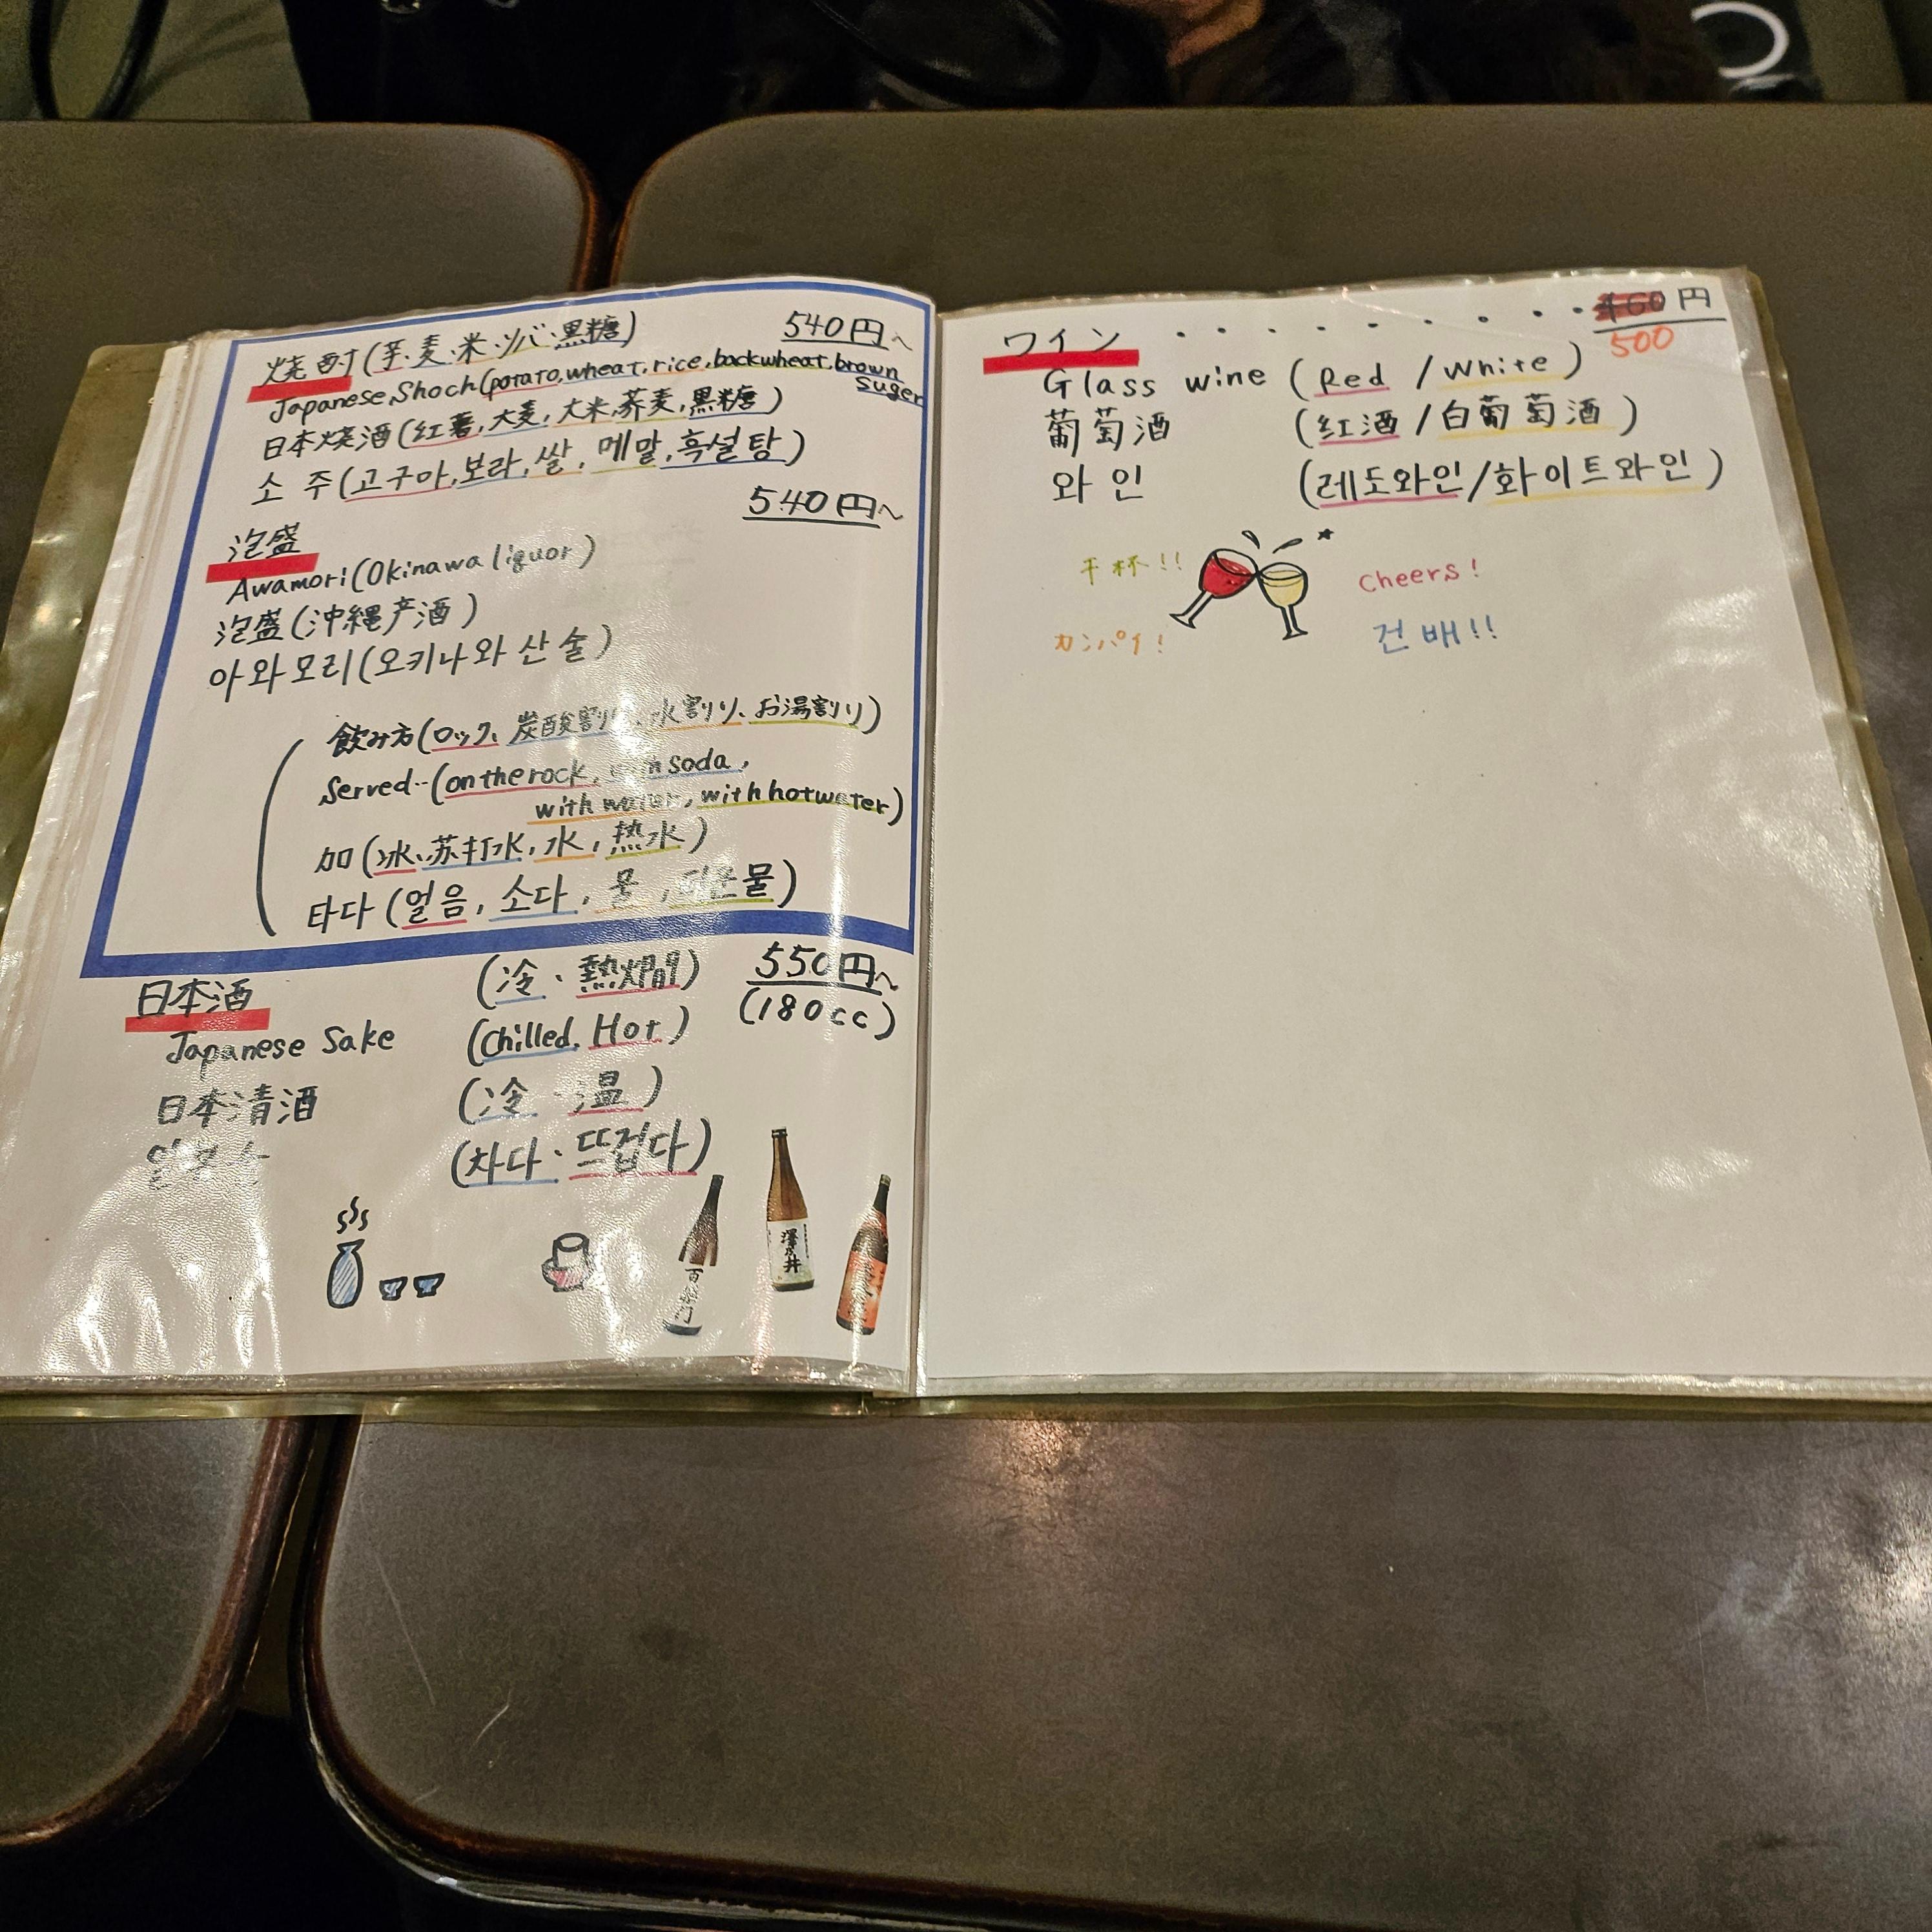 焼酎(芋・麦・米・ソバ・黒糖) 540円~
Japanese Shoch(potato,wheat,rice,backwheat,brown
suger
日本焼酒(红薯,大麦,大米,荞麦,黒糖)
소 주(고구아,보라,쌀,메말,흑설탕)
540円~
泡盛
Awamori(Okinawa liguor)
泡盛(沖縄产酒)
아와모리(오키나와 산 술)
飲み方(ロック、炭酸割り、水割り、お湯割り)
Served‥(on the rock, with soda,
with water, with hotwater)
加(冰、苏打水,水,热水)
타다(얼음,소다,물,물)
日本酒 (冷・熱燗) 550円~
(180cc)
Japanese Sake (Chilled, Hot)
日本清酒 (冷・温)
(차다・뜨겁다)
澤乃井
ワイン ・・・・・・・・・円
500
Glass wine (Red / White)
葡萄酒 (红酒/白葡萄酒)
와인 (레도와인/화이트와인)
干杯!! Cheers!
カンパイ! 건배!!